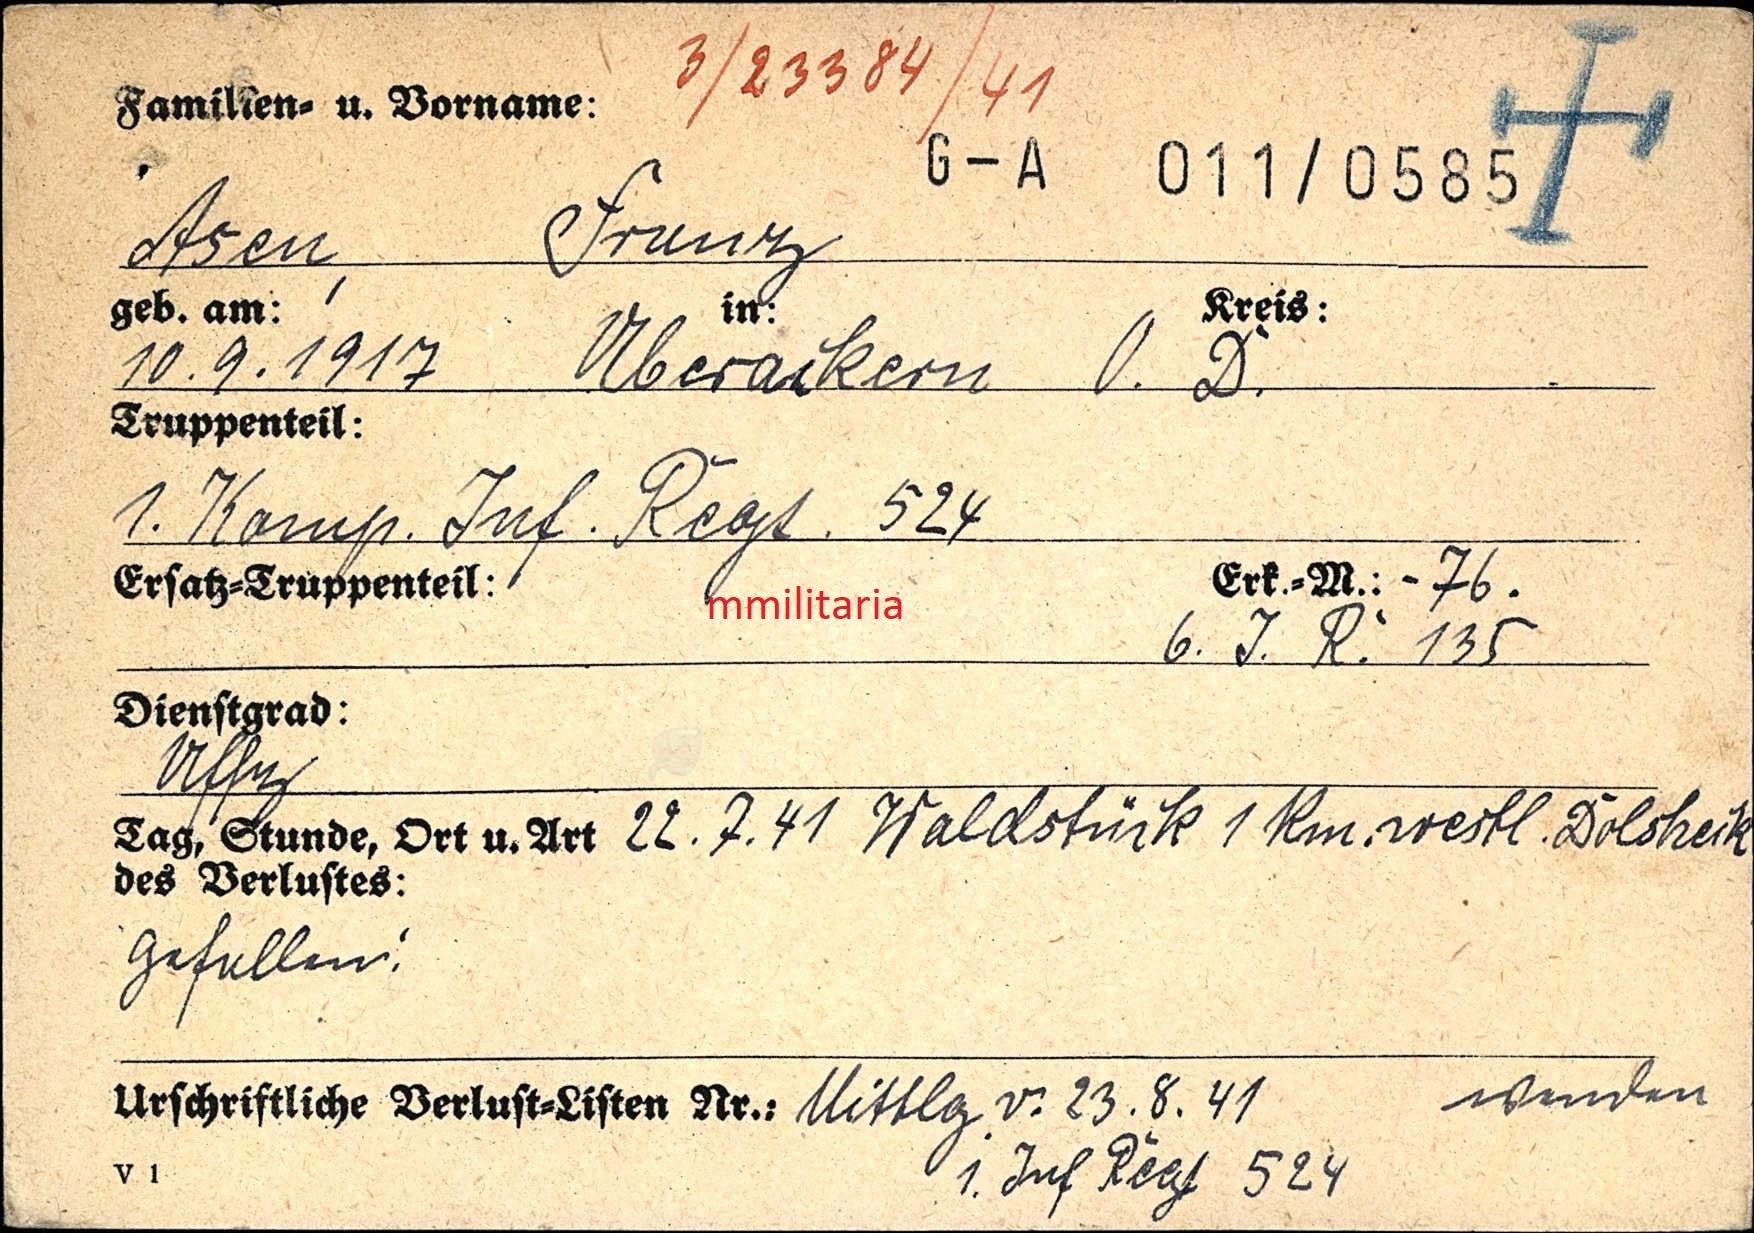 3/23384/41
Familien- u. Vorname:
G-A 011/0585
Asen, Franz
geb. am: in: Kreis:
10.9.1917 Überackern O. D.
Truppenteil:
1. Komp. Inf. Regt. 524
Ersatz-Truppenteil: Erk.-M.: -76.
mmilitaria
6. J. R. 135
Dienstgrad:
Uffz
Tag, Stunde, Ort u. Art 22.7.41 Waldstück 1 km. westl.
des Verlustes:
gefallen.
Urschriftliche Verlust-Listen Nr.: Mittlg v. 23.8.41 wenden
V 1
1. Inf Regt 524